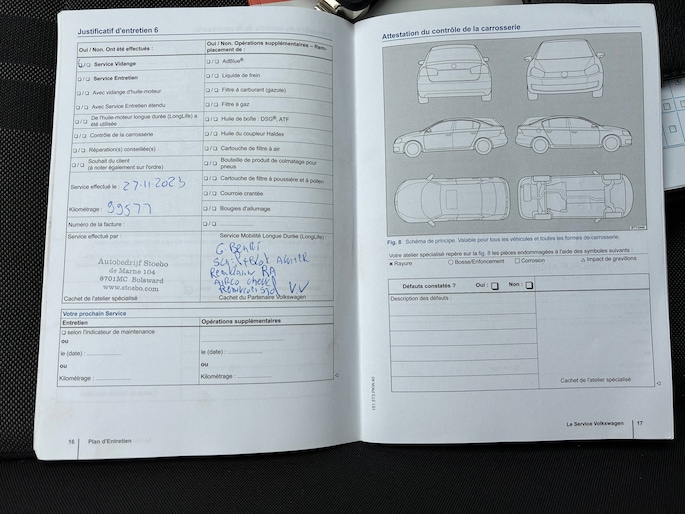 Justificatif d'entretien 6
Oui / Non. Ont été effectués :
❏/❏ Service Vidange
❏/❏ Service Entretien
❏/❏ Avec vidange d'huile-moteur
❏/❏ Avec Service Entretien étendu
❏/❏ De l'huile-moteur longue durée (LongLife) a
été utilisée
❏/❏ Contrôle de la carrosserie
❏/❏ Réparation(s) conseillée(s)
❏/❏ Souhait du client
(à noter également sur l'ordre)
Service effectué le : 27-11-2023
Kilométrage : 99577
Numéro de la facture :
Service effectué par :
Autobedrijf Stoebo
de Marne 104
8701MC Bolsward
www.stoebo.com
Cachet de l'atelier spécialisé
Oui / Non. Opérations supplémentaires – Rem-
placement de :
❏/❏ AdBlue®
❏/❏ Liquide de frein
❏/❏ Filtre à carburant (gazole)
❏/❏ Filtre à gaz
❏/❏ Huile de boîte : DSG®, ATF
❏/❏ Huile du coupleur Haldex
❏/❏ Cartouche de filtre à air
❏/❏ Bouteille de produit de colmatage pour
pneus
❏/❏ Cartouche de filtre à poussière et à pollen
❏/❏ Courroie crantée
❏/❏ Bougies d'allumage
❏/❏
Service Mobilité Longue Durée (LongLife) :
Airco check
Cachet du Partenaire Volkswagen
Votre prochain Service
Entretien
❏ selon l'indicateur de maintenance
ou
le (date) :
ou
Kilométrage :
Opérations supplémentaires
le (date) :
ou
Kilométrage :
16 Plan d'Entretien
Attestation du contrôle de la carrosserie
Fig. 8 Schéma de principe. Valable pour tous les véhicules et toutes les formes de carrosserie.
Votre atelier spécialisé repère sur la fig. 8 les pièces endommagées à l'aide des symboles suivants :
× Rayure ○ Bosse/Enfoncement □ Corrosion △ Impact de gravillons
Défauts constatés ? Oui : ❏ Non : ❏
Description des défauts
Cachet de l'atelier spécialisé
Le Service Volkswagen 17